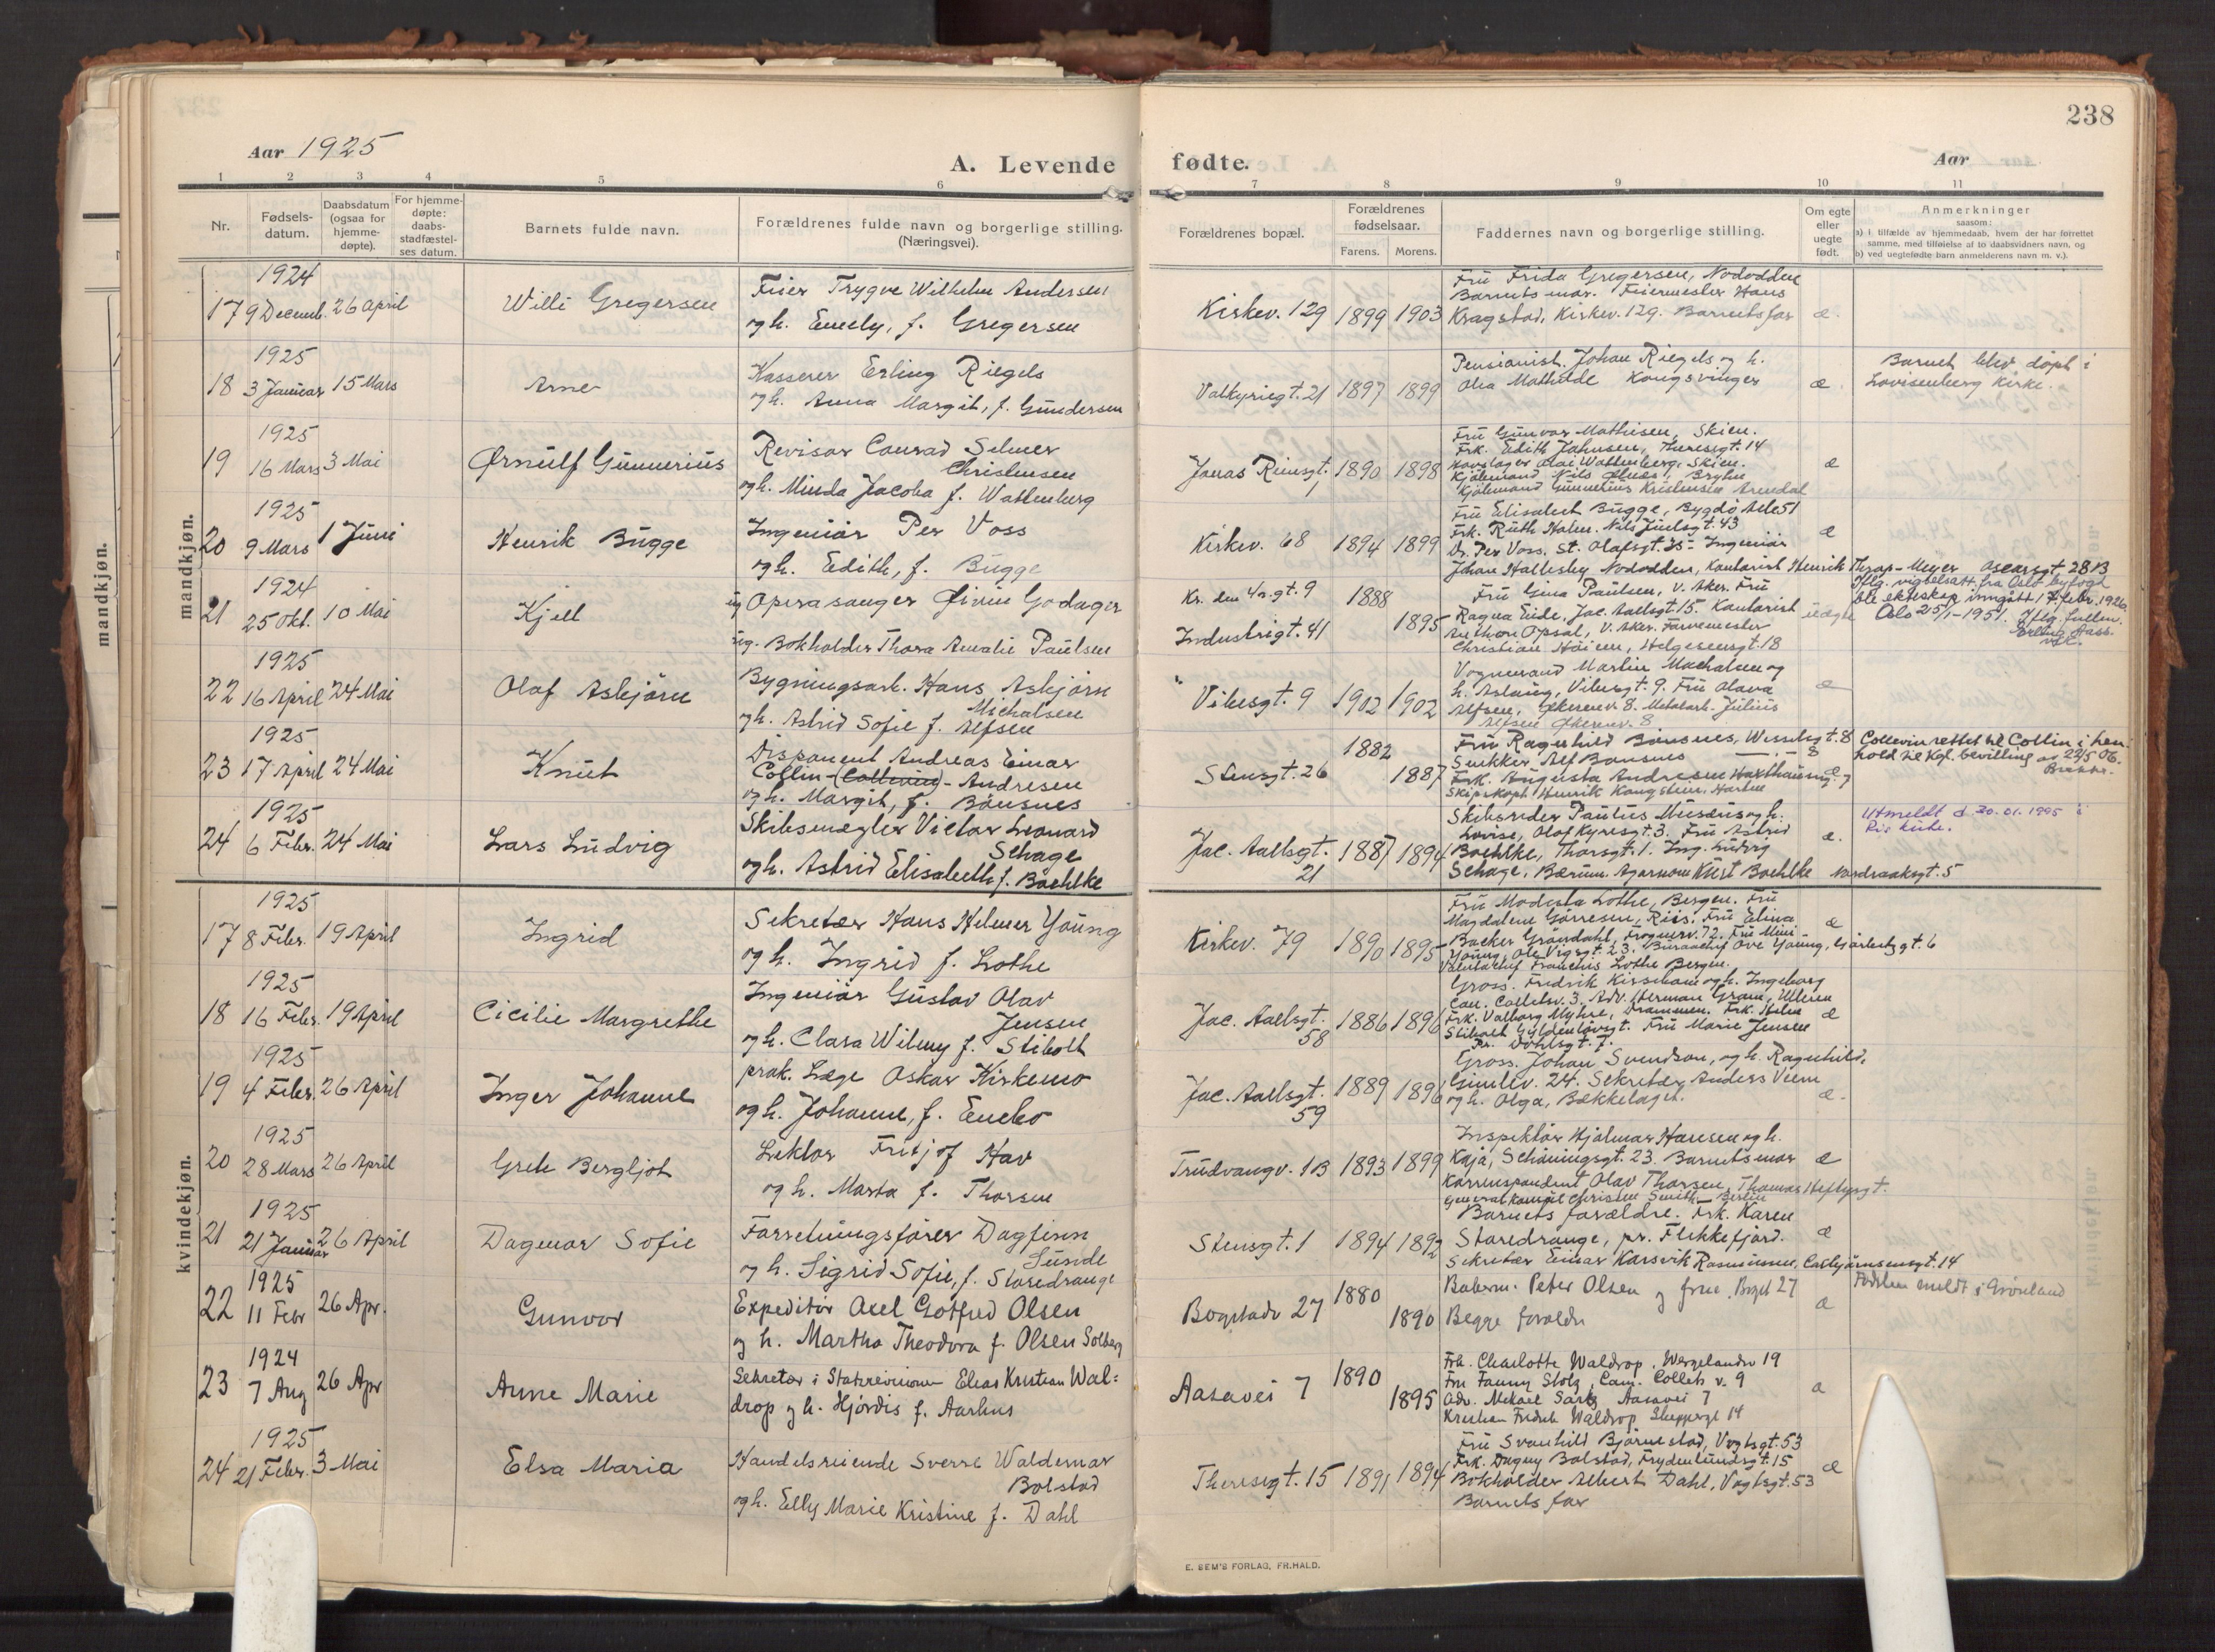 238
Aar 1925
A. Levende fødte.
Aar
1 2 3 4 5 6 7 8 9 10 11
Nr.
Fødsels-
datum.
Daabsdatum
(ogsaa for
hjemme-
døpte).
For hjemme-
døpte:
daabs-
stadfæstel-
ses datum.
Barnets fulde navn.
Forældrenes fulde navn og borgerlige stilling.
(Næringsvei).
Forældrenes bopæl.
Forældrenes
fødselsaar.
Farens. Morens.
Faddernes navn og borgerlige stilling.
Om egte
eller
uegte
født.
Anmerkninger
saasom:
a) i tilfælde av hjemmedaab, hvem der har forrettet
samme, med tilføielse af to daabsvidners navn, og
b) ved uegtefødte barn anmelderens navn m. v.).
mandkjøn.
mandkjøn.
1924
17 9 Decemb. 26 April
Willi Gregersen
Feier Trygve Wilhelm Andersen
og h. Emely, f. Gregersen
Kirkev. 129 1899 1903
Fru Frida Gregersen, Nododden
Barnets mor. Feiermester Hans
Kragstad, Kirkev. 129. Barnets far
æ.
1925
18 3 Januar 15 Mars
Arne
Kasserer Erling Riegels
og h. Anna Margit, f. Gundersen
Valkyriegt. 21 1897 1899
Pensionist Johan Riegels og h.
Olia Mathilde Kongsvinger
æ.
Barnet blev døpt i
Lovisenberg Kirke.
1925
19 16 Mars 3 Mai
Ørnulf Gunnerius
Revisor Conrad Selmer
Christensen
og h. Minda Jacoba f. Wattenberg
Jonas Reinsgt. 1 1890 1898
Fru Gunvor Mathisen, Skien.
Frk. Edith Johnsen, Theresegt. 14
Olai Wattenberg, Skien.
Kjøbmand Nils Bryhn
Kjøbmand Gunnerius Kristensen Arendal
æ
1925
20 9 Mars 1 Juni
Henrik Bugge
Ingeniør Per Voss
og h. Edith, f. Bugge
Kirkev. 68 1894 1899
Fru Elisabeth Bugge, Bygdø Alle 51
Frk. Ruth Holm. Nils Juelsgt. 43
Dr. Per Voss. St. Olafsgt. Ingeniør
Johan Hallesby Nododden, Kontorist Henrik Thrap-Meyer Oscarsgt 28B
æ
1924
21 25 Okt. 10 Mai
Kjell
ug Operasanger Øivin Godager
ug. Bokholder Thora Amalie Paulsen
Kr. den 4s. gt. 9 1888
Industrigt. 41 1895
Fru Gina Paulsen, V. Aker. Fru
Ragna Eide, Jac. Aallsgt. 15. Kontorist
Anthon Opsal, V. Aker. Farvemester
Christian Høien, Helgesensgt. 18
uegte
Iflg. vigselsatt. fra Oslo byfogd
ble ekteskap inngått 17. febr. 1926.
Oslo 25/1-1951.
1925
22 16 April 24 Mai
Olaf Asbjørn
Bygningsarb. Hans Asbjørn
Michalsen
og h. Astrid Sofie f. Alfsen
Vibesgt. 9 1902 1902
Vognmand Martin Machalsen og
h. Aslaug, Vibesgt. 9. Fru Olava
Alfsen, Økernv. 8. Metalarb. Julius
Alfsen Økernv. 8
æ
1925
23 17 April 24 Mai
Knut
Disponent Andreas Einar
Collin-(Collevin)-Andresen
og h. Margit, f. Bonsnes
Stensgt. 26 1882 1887
Fru Ragnhild Bonsnes, Wesselsgt. 8
Snikker Alf Bonsnes — " — 8
Frk. Augusta Andresen Haxthausensgt. 7
Skipskapt. Henrik Kongstein, Horten
æ
Collevin rettet til Collin i hen-
hold til Kgl. bevilling av 22/5 06.
1925
24 6 Febr. 24 Mai
Lars Ludvig
Skibsmegler Victor Leonard
Schage
og h. Astrid Elisabeth f. Boehlke
Jac. Aallsgt. 21 1887 1894
Skibsreder Paulus Musæus og h.
Lovise, Olaf Kyresgt. 3. Fru Astrid
Boehlke, Thorsgt. 1. Ing. Ludvig
Schage, Bærum. Agronom Kurt Boehlke Nordraaksgt. 5
æ.
Utmeldt d 30.01.1995 i
Ris kirke.
kvindekjøn.
1925
17 8 Febr. 19 April
Ingrid
Sekretær Hans Helmer Young
og h. Ingrid f. Lothe
Kirkev. 79 1890 1895
Fru Modesta Lothe, Bergen. Fru
Magdalene Gørresen, Riis. Fru Elina
Backer Grøndahl, Frognerv. 72. Fru Mimi
Young, Ole Vigsgt. 23. Burauchef Ove Young, Gjørbitzgt. 6
Valutachef Franchis Lothe Bergen.
æ
1925
18 16 Febr. 19 April
Cicilie Margrethe
Ingeniør Gustav Olav
Jensen
og h. Clara Wilmy f. Stibolt
Jac. Aallsgt. 58 1886 1896
Gross. Fredrik Kirseboom og h. Ingeborg
Cam. Colletsv. 3. Adv. Herman Gram, Ullern
Frk. Valborg Myhre, Drammen. Frk. Helen
Stibolt Gyldenløvsgt. Fru Marie Jensen
Pr. Dahlsgt. 7.
æ
1925
19 4 Febr. 26 April
Inger Johanne
prak. Læge Oskar Kirkemo
og h. Johanne, f. Enebo
Jac. Aallsgt. 59 1889 1896
Gross. Johan Svendson, og h. Ragnhild,
Gimlev. 24. Sekretær Anders Veum
og h. Olga, Bækkelaget.
æ.
1925
20 28 Mars 26 April
Grete Bergljot
Lektor Fritjof Hav
og h. Marta f. Thorsen
Trudvangv. 1B 1893 1899
Inspektør Hjalmar Hansen og h.
Kaja, Schøningsgt. 23. Barnets mor
Korrespondent Olav Thorsen, Thomas Heftyesgt.
Generalkonsul Christen Smith. Berlin
æ
1925
21 21 Januar 26 April
Dagmar Sofie
Forretningsfører Dagfinn
Sunde
og h. Sigrid Sofie, f. Staredrange
Stensgt. 1 1894 1892
Barnets forældre. Frk. Karen
Staredrange, pr. Flekkefjord.
Sekretær Einar Korsvik Rasmussen, Casbjørnsensgt. 14
æ
1925
22 11 Febr 26 Apr.
Gunvor
Expeditør Axel Gotfred Olsen
og h. Martha Theodora f. Olsen Solberg
Bogstadv 27 1880 1890
Peter Olsen og frue, Bogst 27
Begge foreldre
æ
Fødslen meldt i Grønland
1924
23 7 Aug 26 Apr
Anne Marie
Sekretær i Statsrevisionen Elias Kristian Wal=
drop og h. Hjørdis f. Aarhus
Aasavei 7 1890 1895
Frk. Charlotte Waldrop, Wergelandsv 19
Fru Fanny Stolz, Cam. Collets v. 9
Adv. Mikael Aasavei 7
Kristian Fredrik Waldrop 14
æ
1925
24 21 Febr. 3 Mai
Elsa Maria
Handelsreisende Sverre Waldemar
Bolstad
og h. Elly Marie Kristine f. Dahl
Theresegt. 15 1891 1894
Fru Svanhild Bjørnestad, Vogtsgt. 53
Frk. Dagny Bolstad, Frydenlundsgt. 15
Bokholder Albert Dahl, Vogtsgt. 53
Barnets far
æ
E. SEM'S FORLAG, FR.HALD.